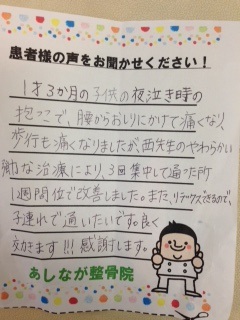 患者様の声をお聞かせください！
1才3か月の子供の夜泣き時の
抱っこで、腰からおしりにかけて痛くなり、
歩行も痛くなりましたが、西先生のやわらかい
的な治療により、3回集中して通った所
1週間位で改善しました。また、リラックスできるので、
子連れで通いたいです。良く
効きます!!! 感謝します。
あしなが整骨院